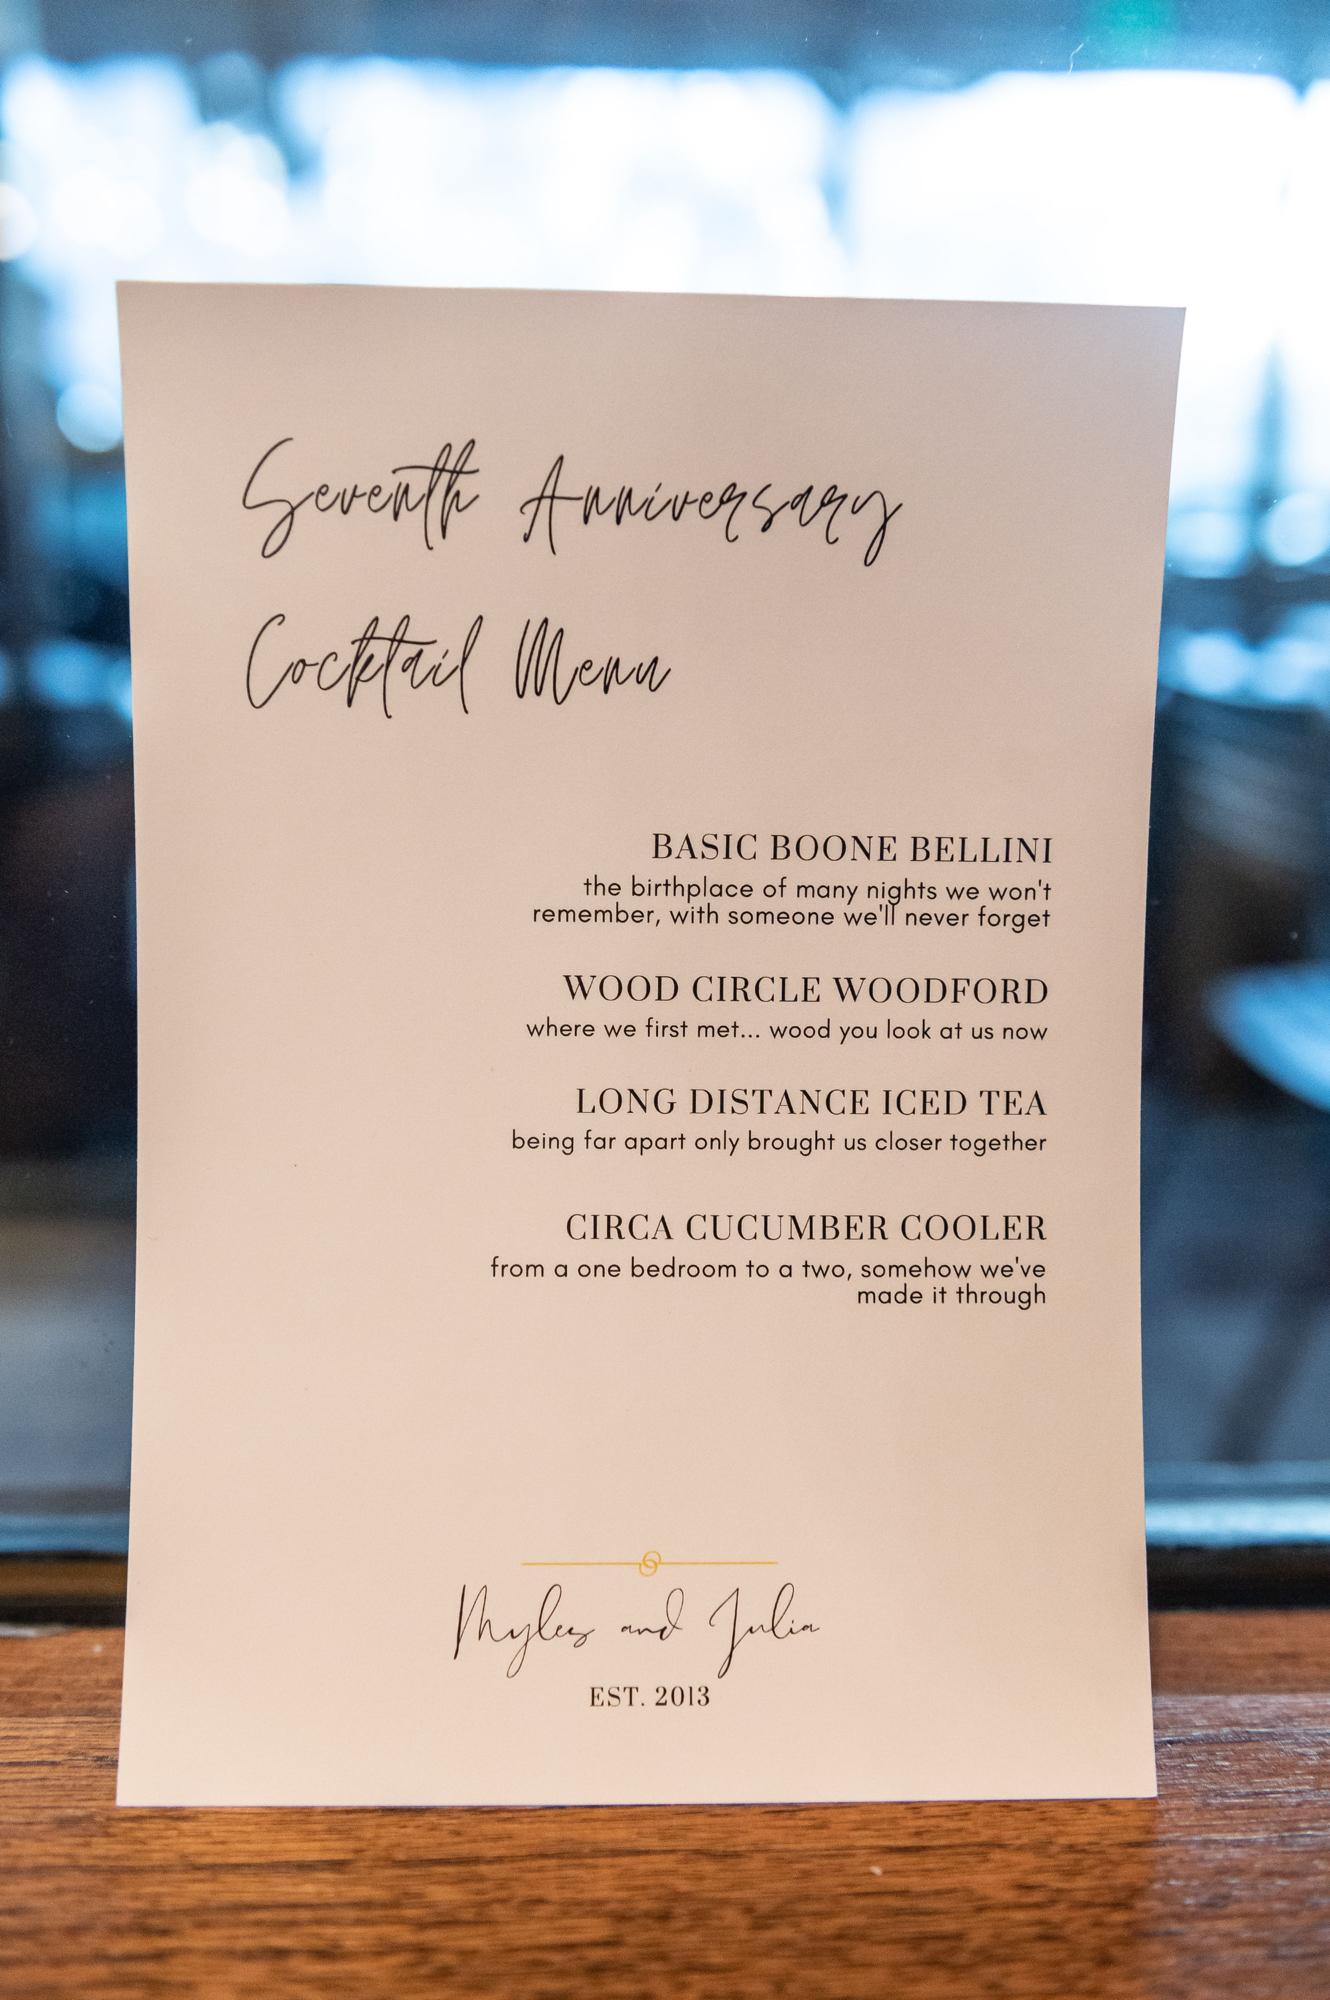 Seventh Anniversary
Cocktail Menu
BASIC BOONE BELLINI
the birthplace of many nights we won't
remember, with someone we'll never forget
WOOD CIRCLE WOODFORD
where we first met... wood you look at us now
LONG DISTANCE ICED TEA
being far apart only brought us closer together
CIRCA CUCUMBER COOLER
from a one bedroom to a two, somehow we've
made it through
Myles and Julia
EST. 2013